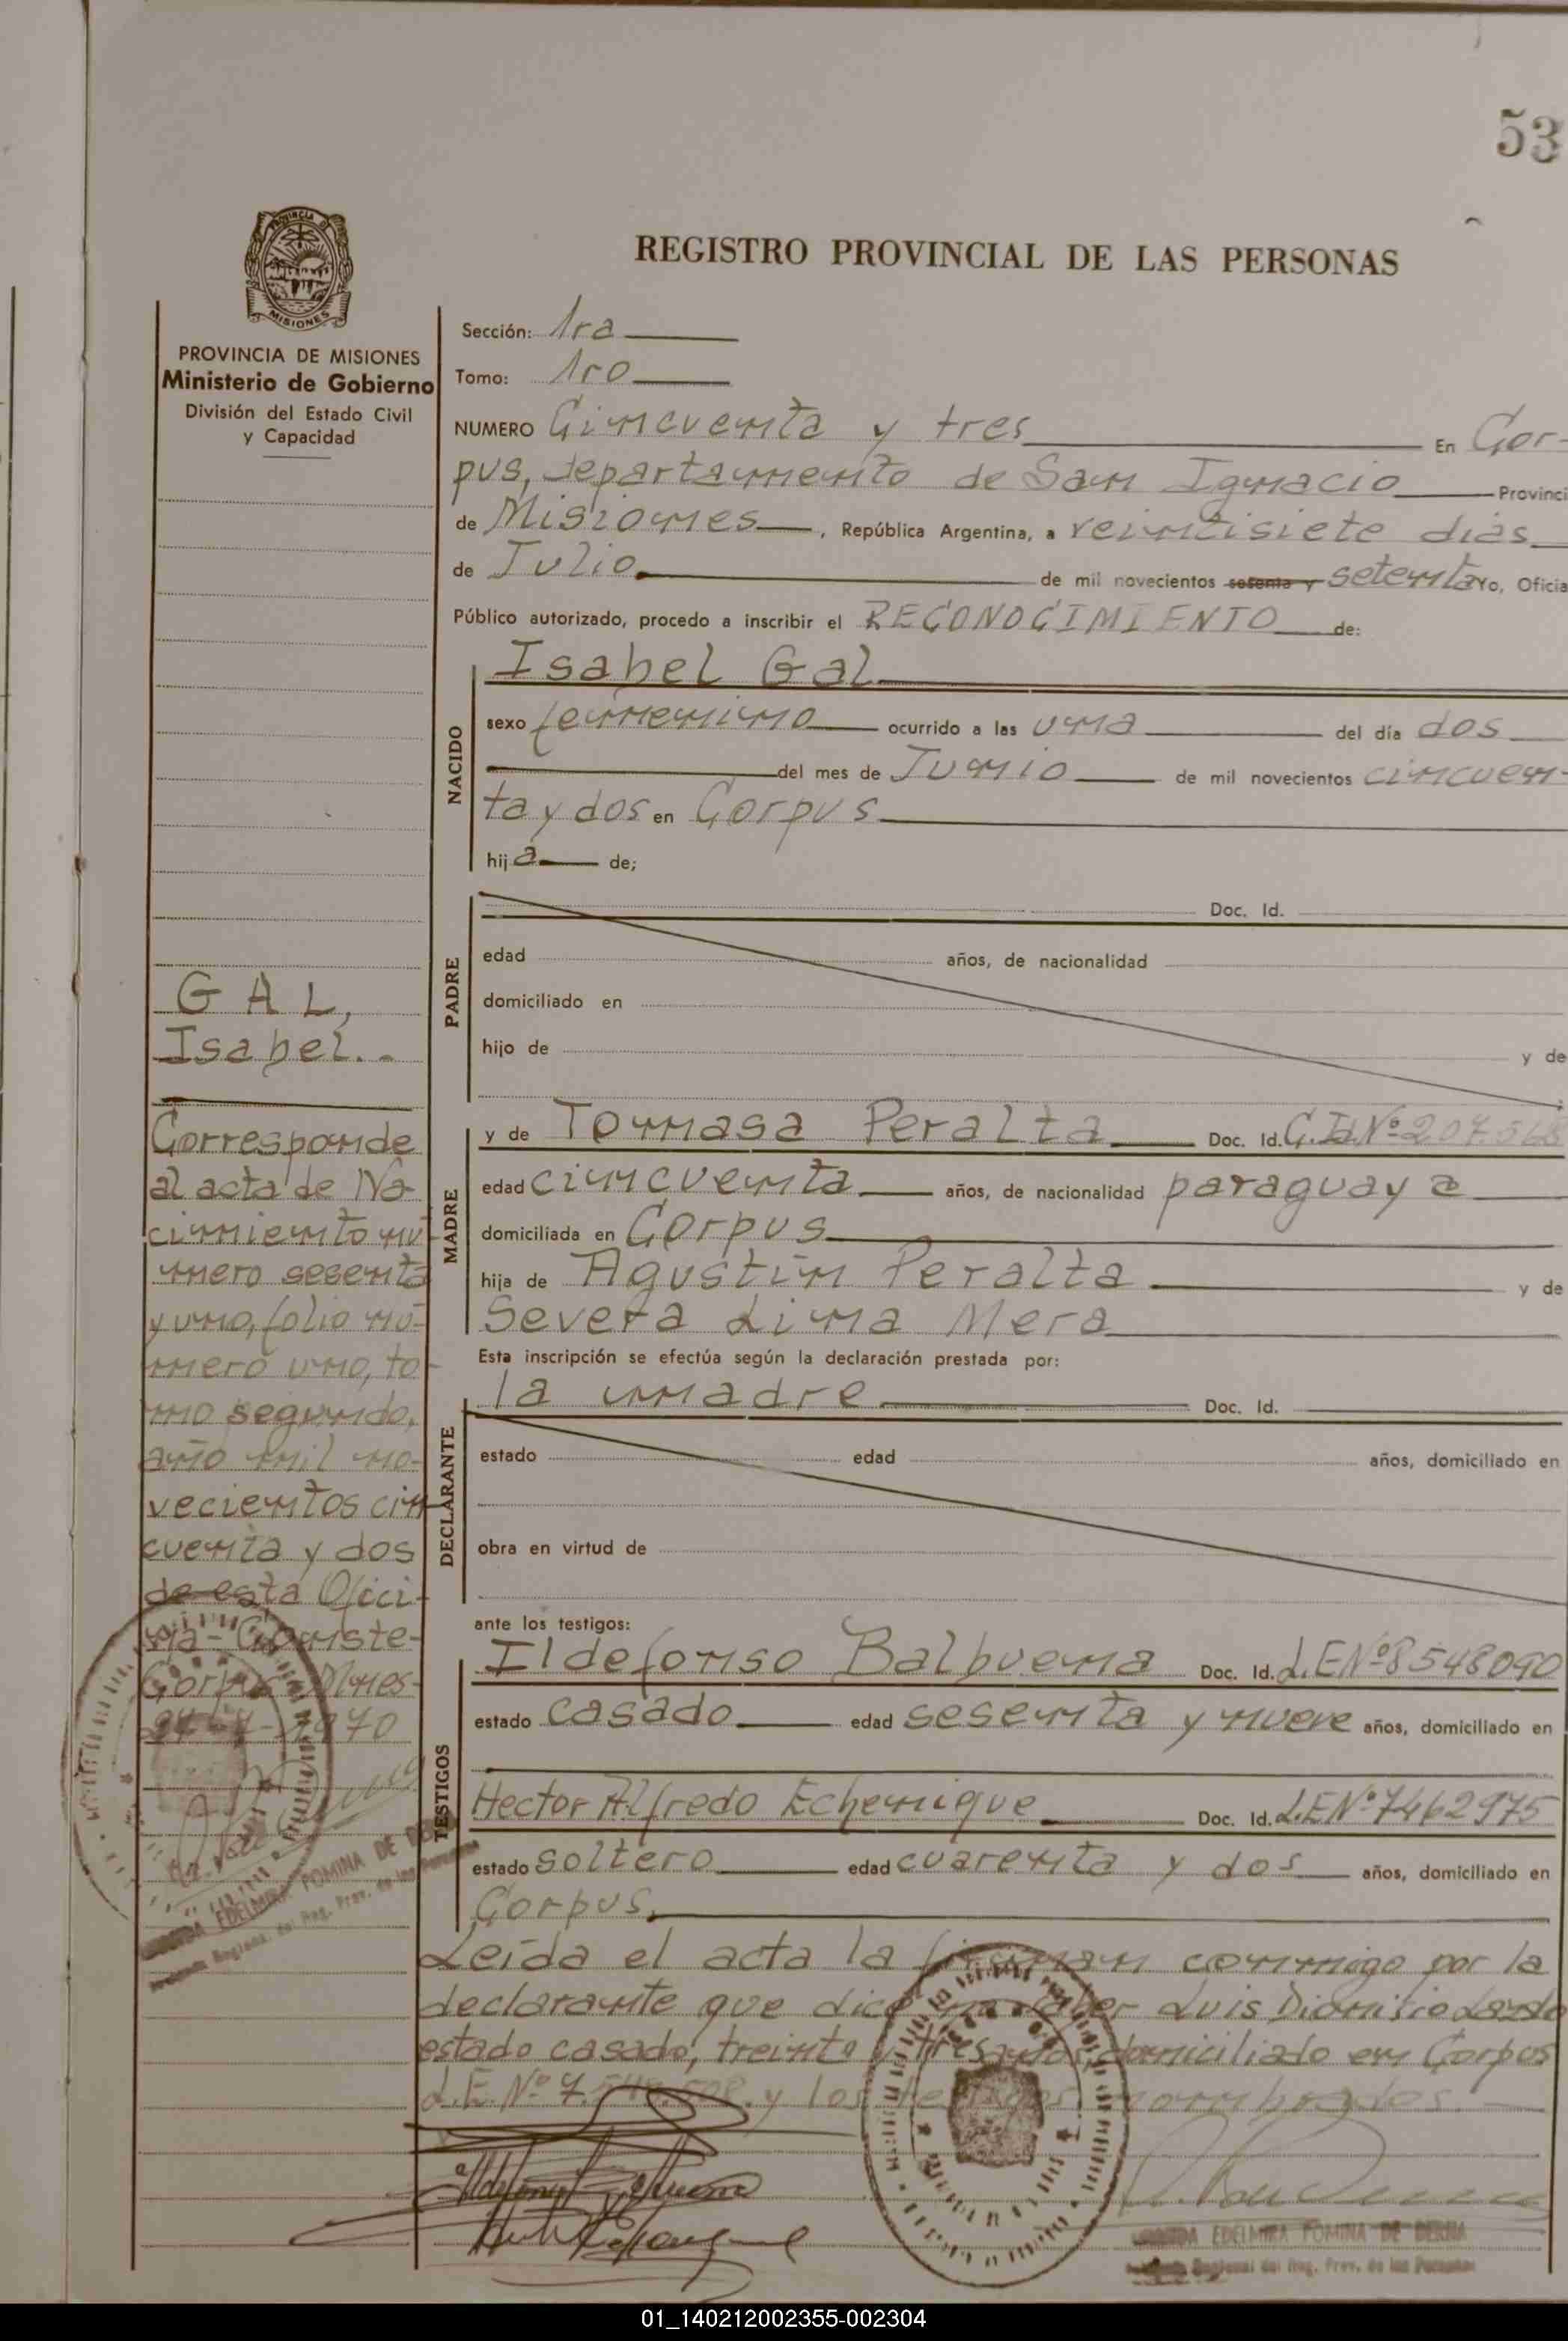 53
PROVINCIA DE
MISIONES
REGISTRO PROVINCIAL DE LAS PERSONAS
PROVINCIA DE MISIONES
Ministerio de Gobierno
División del Estado Civil
y Capacidad
Sección: 1ra
Tomo: 1ro
NUMERO Cincuenta y tres En Cor-
pus, departamento de San Ignacio Provinci
de Misiones, República Argentina, a veintisiete dias
de Julio de mil novecientos sesenta y setenta Yo, Oficia
Público autorizado, procedo a inscribir el RECONOCIMIENTO de:
NACIDO
Isabel Gal
sexo femenino ocurrido a las una del día dos
del mes de Junio de mil novecientos cincuen-
ta y dos en Corpus
hija de;
PADRE
Doc. Id.
edad años, de nacionalidad
domiciliado en
hijo de y de
MADRE
y de Tomasa Peralta Doc. Id. C.I.Nº 207.568
edad cincuenta años, de nacionalidad paraguaya
domiciliada en Corpus
hija de Agustín Peralta y de
Severa Lima Mera
Esta inscripción se efectúa según la declaración prestada por:
DECLARANTE
la madre Doc. Id.
estado edad años, domiciliado en
obra en virtud de
ante los testigos:
TESTIGOS
Ildefonso Balbuena Doc. Id. L.E.Nº 8548090
estado casado edad sesenta y nueve años, domiciliado en
Hector Alfredo Echenique Doc. Id. L.E.Nº 7462975
estado soltero edad cuarenta y dos años, domiciliado en
Corpus.
Leída el acta la firman conmigo por la
declarante que dice no saber Luis Dionisio
estado casado, treinta y tres años, domiciliado en Corpus
L.E. Nº y los testigos nombrados.
GAL,
Isabel.-
Corresponde
al acta de Na-
cimiento nú-
mero sesenta
y uno, folio nú-
mero uno, to-
mo segundo,
año mil no-
vecientos cin
cuenta y dos
de esta Ofici-
na - Conste-
Corpus Mnes-
1970
EDELMIRA POMINA DE
Reg. Prov. de las Personas
EDELMIRA POMINA DE
Regional del Reg. Prov. de las Personas
01_140212002355-002304